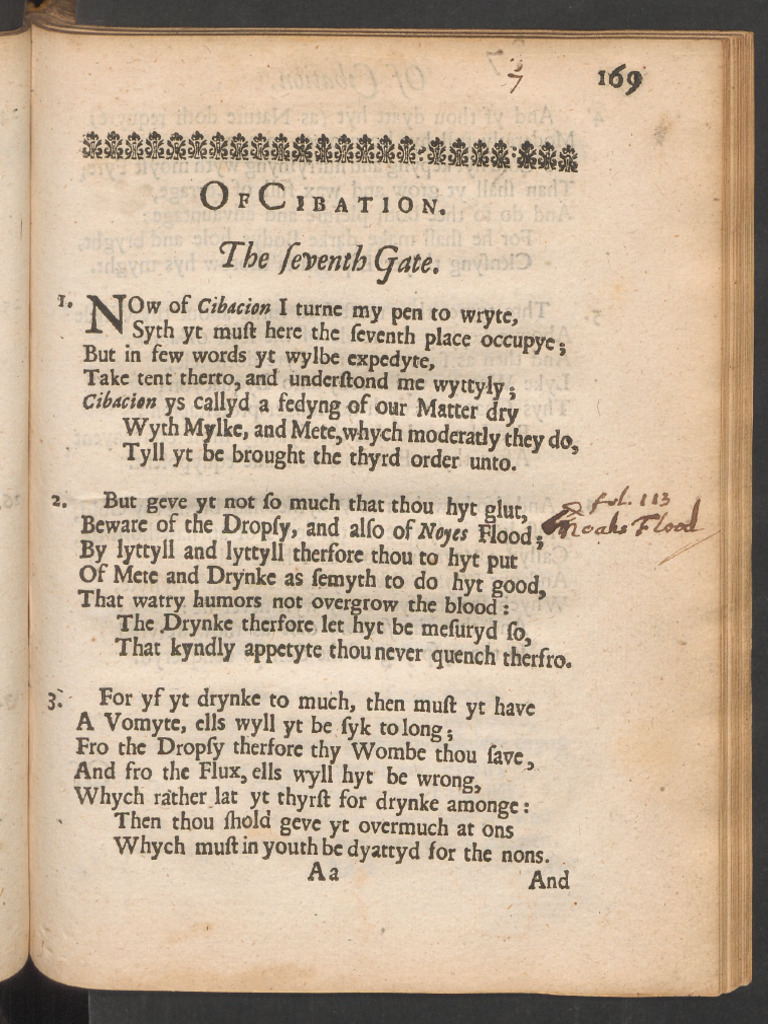 7
169
OF CIBATION.
The ſeventh Gate.
1. NOw of Cibacion I turne my pen to wryte,
Syth yt muſt here the ſeventh place occupye;
But in few words yt wylbe expedyte,
Take tent therto, and underſtond me wyttyly;
Cibacion ys callyd a fedyng of our Matter dry
Wyth Mylke, and Mete, whych moderatly they do,
Tyll yt be brought the thyrd order unto.
2. But geve yt not ſo much that thou hyt glut,
fol. 113
Beware of the Dropſy, and alſo of Noyes Flood;
Noahs Flood
By lyttyll and lyttyll therfore thou to hyt put
Of Mete and Drynke as ſemyth to do hyt good,
That watry humors not overgrow the blood:
The Drynke therfore let hyt be meſuryd ſo,
That kyndly appetyte thou never quench therfro.
3. For yf yt drynke to much, then muſt yt have
A Vomyte, ells wyll yt be ſyk to long;
Fro the Dropſy therfore thy Wombe thou ſave,
And fro the Flux, ells wyll hyt be wrong,
Whych rather lat yt thyrſt for drynke amonge:
Then thou ſhold geve yt overmuch at ons
Whych muſt in youth be dyattyd for the nons.
Aa
And